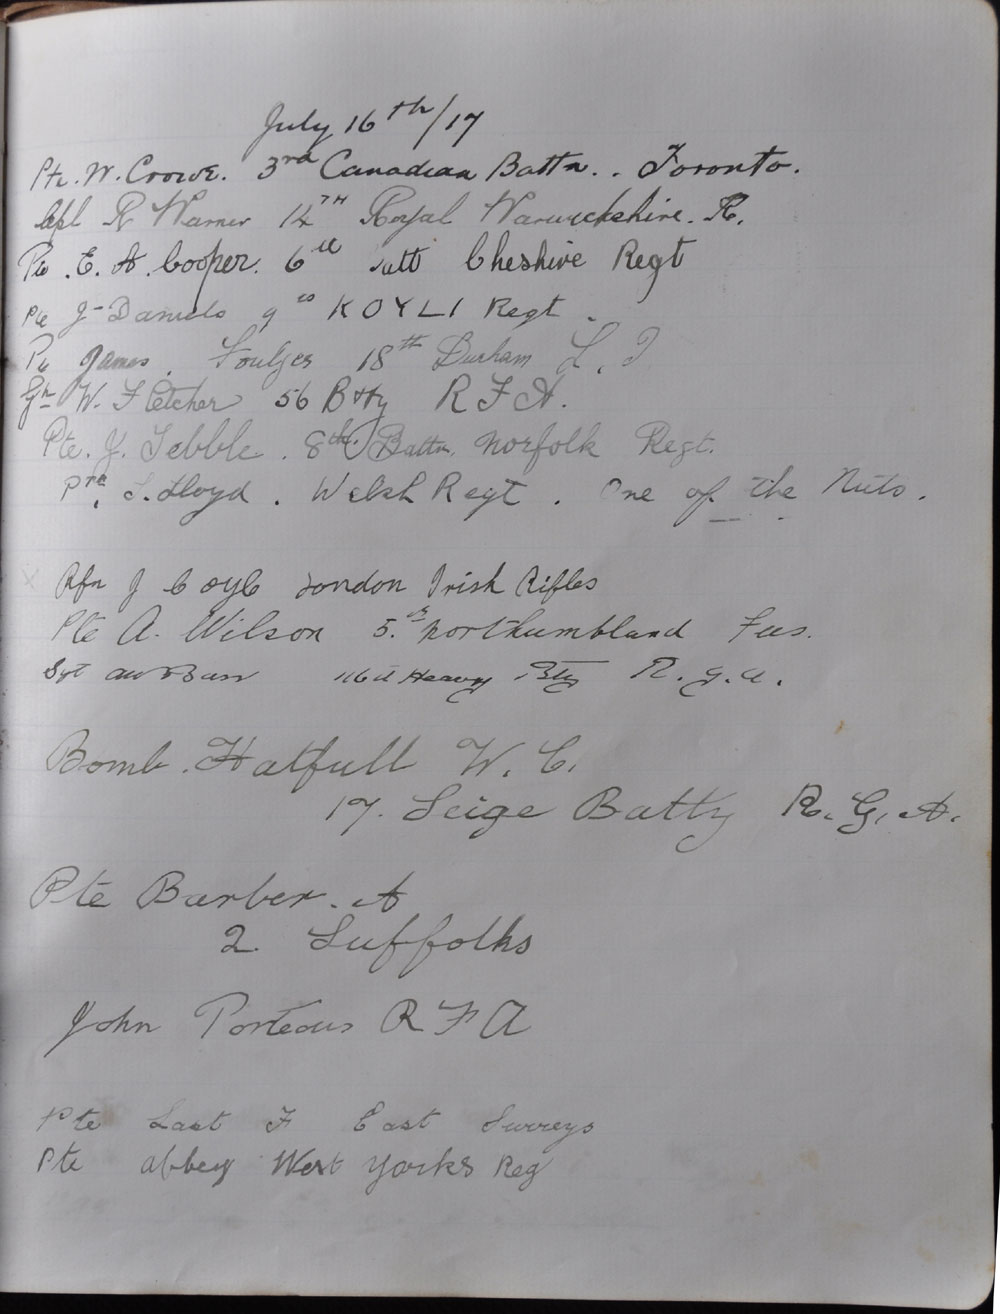 July 16th/17
Pte. W. Crowe. 3rd Canadian Battn.. Toronto.
Cpl R Warner 14TH Royal Warwickshire. R.
Pte. E. A. Cooper. 6th Batt Cheshire Regt
Pte J. Daniels 9th KOYLI Regt.
Pte James. Foulger 18th Durham L. I
Gnr W. Fletcher 56 Bty R F A.
Pte. J. Tebble. 8th Battn. Norfolk Regt.
Pte. Lloyd. Welsh Regt. One of the Nuts.
Rfn J Coyle London Irish Rifles
Pte A. Wilson 5.th Northumbland Fus.
Sgt Heavy Bty R. G. A.
Bomb. Hatfull W. C.
17. Seige Batty R. G. A.
Pte Barber. A
2 Suffolks
John Porteous R F A
Pte Last F East Surreys
Pte Abbey West Yorks Reg